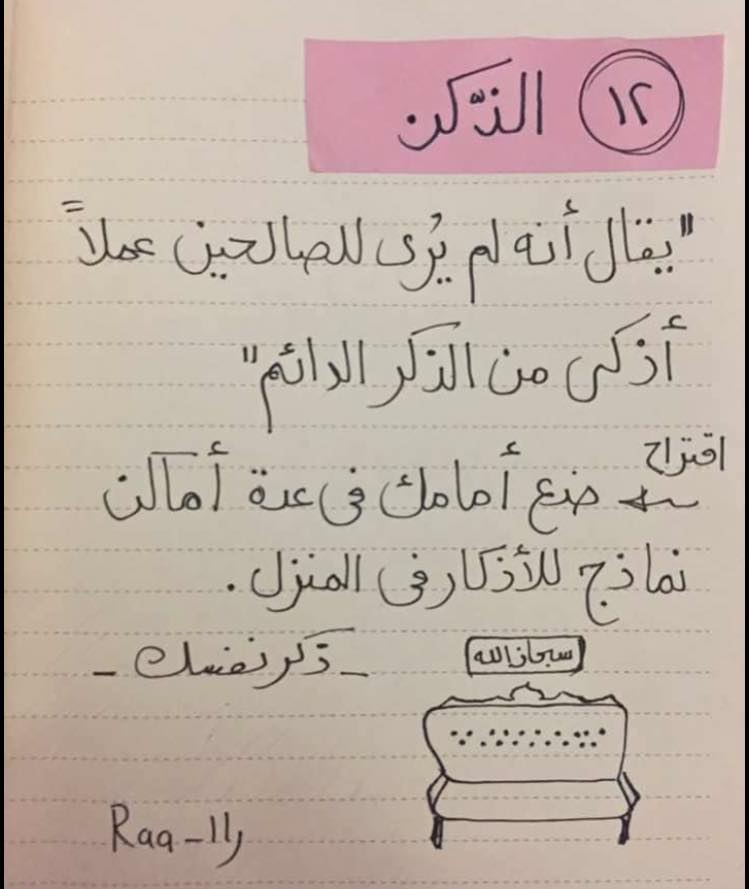 ١٢ الذّكر
"يقال أنه لم يُرى للصالحين عملاً
أزكى من الذكر الدائم"
اقتراح
ضع أمامك في عدة أماكن
نماذج للأذكار في المنزل.
سبحان الله
- ذكر نفسك -
Raa_11ر